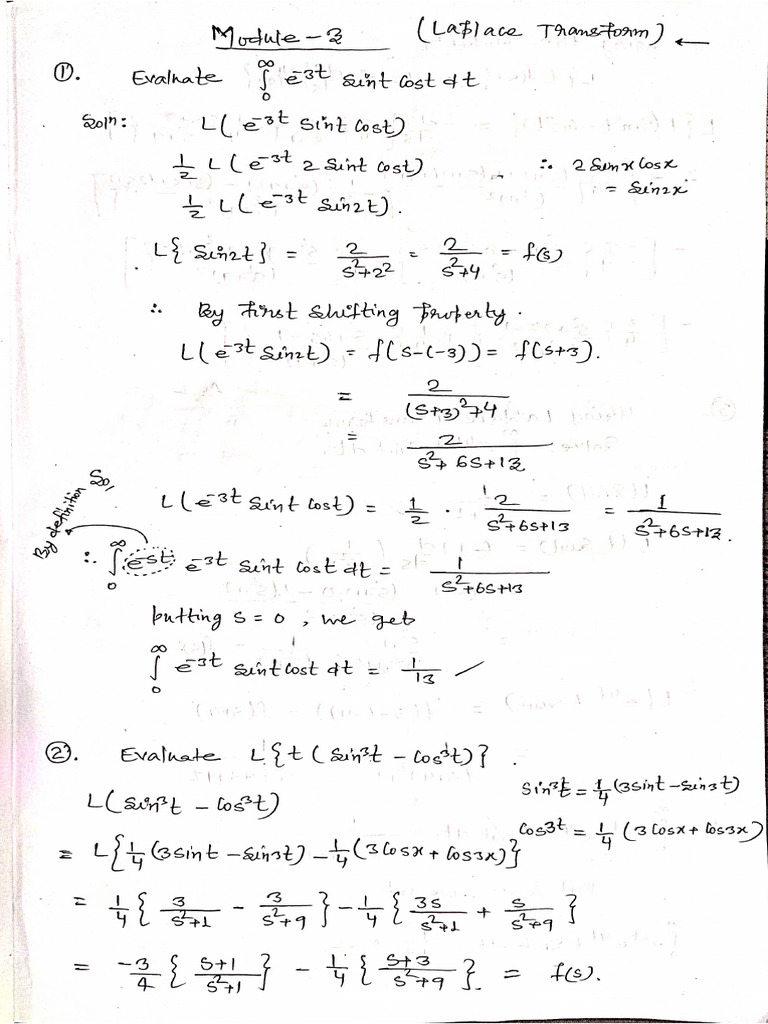 Module - 3 (Laplace Transform) ←
①. Evaluate ∫₀^∞ e^-3t sint cost dt
Solⁿ: L( e^-3t sint cost)
1/2 L( e^-3t 2 sint cost) ∴ 2 sinx cosx
1/2 L( e^-3t sin2t). = sin2x
L{ sin2t} = 2/(s²+2²) = 2/(s²+4) = f(s)
∴ By first shifting property.
L( e^-3t sin2t) = f(s-(-3)) = f(s+3).
= 2/((s+3)²+4)
= 2/(s²+6s+13)
L( e^-3t sint cost) = 1/2 · 2/(s²+6s+13) = 1/(s²+6s+13).
By definition Sol
∴ ∫₀^∞ e^-st e^-3t sint cost dt = 1/(s²+6s+13)
putting s = 0, we get
∫₀^∞ e^-3t sint cost dt = 1/13
②. Evaluate L{t (sin³t - cos³t)}.
L(sin³t - cos³t) sin³t = 1/4 (3sint - sin3t)
cos³t = 1/4 (3cosx + cos3x)
= L{1/4 (3sint - sin3t) - 1/4 (3cosx + cos3x)}
= 1/4 { 3/(s²+1) - 3/(s²+9) } - 1/4 { 3s/(s²+1) + s/(s²+9) }
= -3/4 { (s+1)/(s²+1) } - 1/4 { (s+3)/(s²+9) } = f(s).